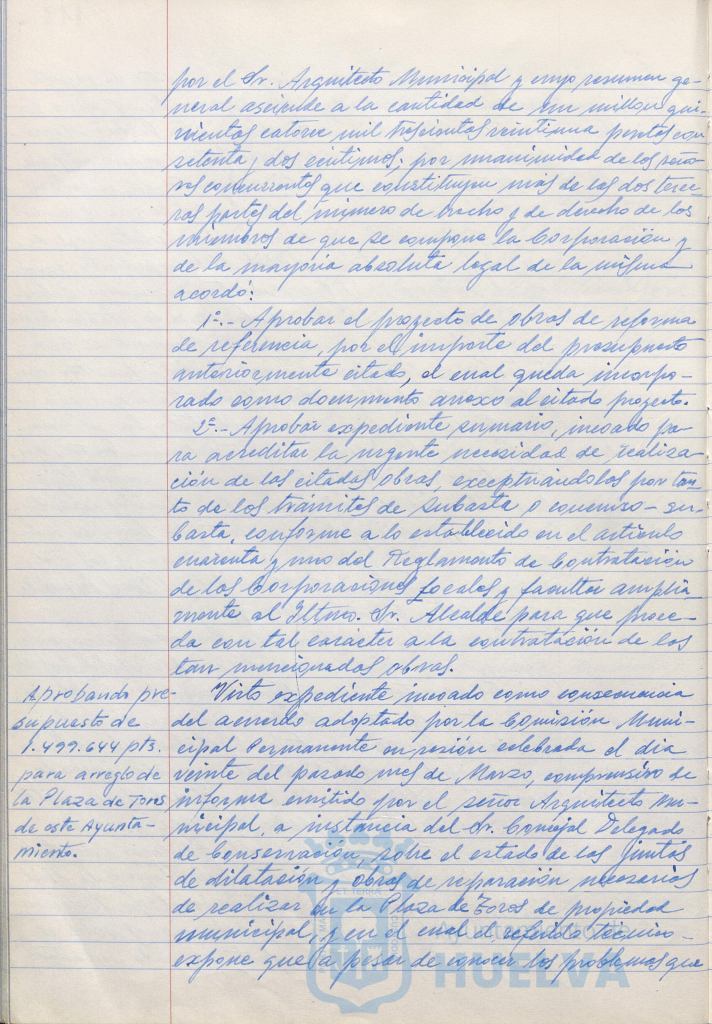 por el Sr. Arquitecto Municipal y cuyo resumen ge-
neral asciende a la cantidad de un millon qui-
nientas catorce mil trescientas veintiuna pesetas con
setenta y dos centimos; por unanimidad de los seño-
res concurrentes que constituyen más de las dos terce-
ras partes del número de hecho y de derecho de los
miembros de que se compone la Corporación y
de la mayoria absoluta legal de la misma
acordó:
1º.- Aprobar el proyecto de obras de reforma
de referencia, por el importe del presupuesto
anteriormente citado, el cual queda incorpo-
rado como documento anexo al citado proyecto.
2º.- Aprobar expediente sumario, incoado pa
ra acreditar la urgente necesidad de realiza-
ción de las citadas obras, exceptuándolas por tan-
to de los trámites de subasta o concurso-su-
basta, conforme a lo establecido en el articulo
cuarenta y uno del Reglamento de Contratación
de las Corporaciones Locales y facultar amplia-
mente al Iltmo. Sr. Alcalde para que proce-
da con tal carácter a la contratación de las
tan mencionadas obras.
Aprobando pre-
supuesto de
1.499.644 pts.
para arreglo de
la Plaza de Toros
de este Ayunta-
miento.
Visto expediente incoado como consecuencia
del acuerdo adoptado por la Comisión Muni-
cipal Permanente en sesión celebrada el dia
veinte del pasado mes de Marzo, comprensivo de
informe emitido por el señor Arquitecto Mu-
nicipal, a instancia del Sr. Concejal Delegado
de Conservación, sobre el estado de las juntas
de dilatación y obras de reparación necesarias
de realizar en la Plaza de Toros de propiedad
municipal, y en el cual el referido técnico
expone que a pesar de conocer los problemas que
Ayuntamiento de
HUELVA